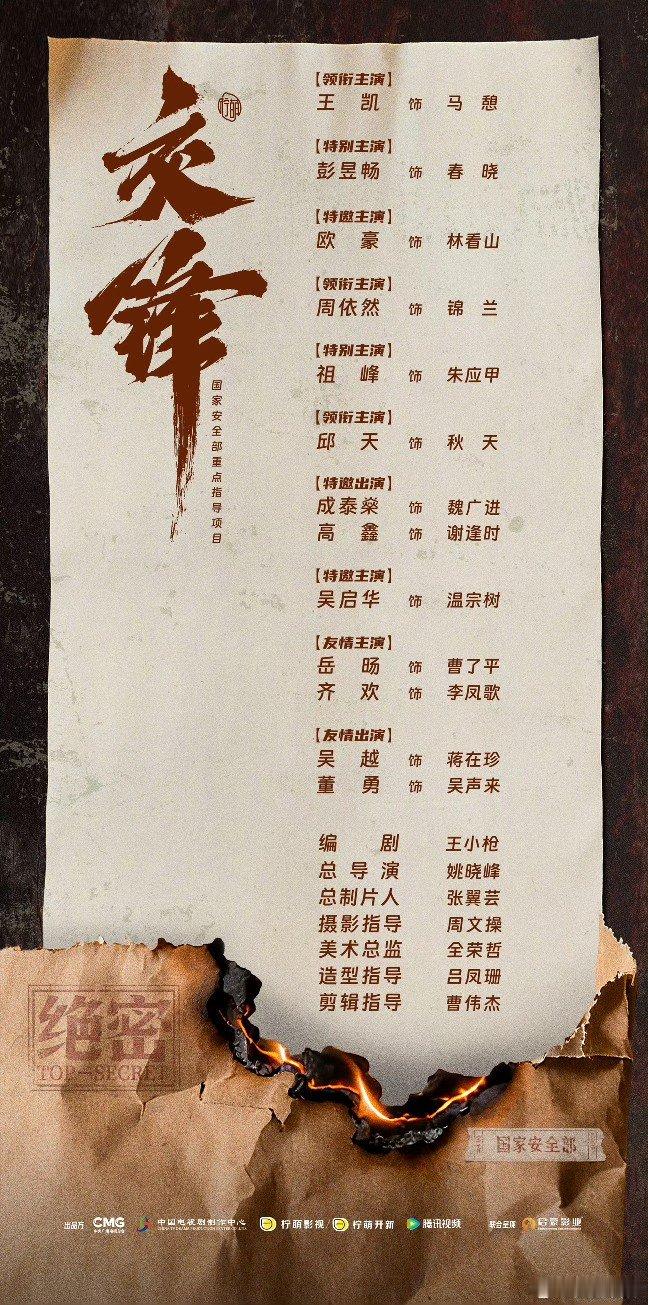 交锋
柠萌
国家安全部重点指导项目
【领衔主演】
王凯 饰 马憩
【特别主演】
彭昱畅 饰 春晓
【特邀主演】
欧豪 饰 林看山
【领衔主演】
周依然 饰 锦兰
【特别主演】
祖峰 饰 朱应甲
【领衔主演】
邱天 饰 秋天
【特邀出演】
成泰燊 饰 魏广进
高鑫 饰 谢逢时
【特邀主演】
吴启华 饰 温宗树
【友情主演】
岳旸 饰 曹了平
齐欢 饰 李凤歌
【友情出演】
吴越 饰 蒋在珍
董勇 饰 吴声来
编剧 王小枪
总导演 姚晓峰
总制片人 张翼芸
摄影指导 周文操
美术总监 全荣哲
造型指导 吕凤珊
剪辑指导 曹伟杰
绝密
TOP-SECRET
国家安全部
出品方 CMG 中央广播电视总台 中国电视剧制作中心 柠萌影视 柠萌开新 腾讯视频 联合呈现 启蒙影业